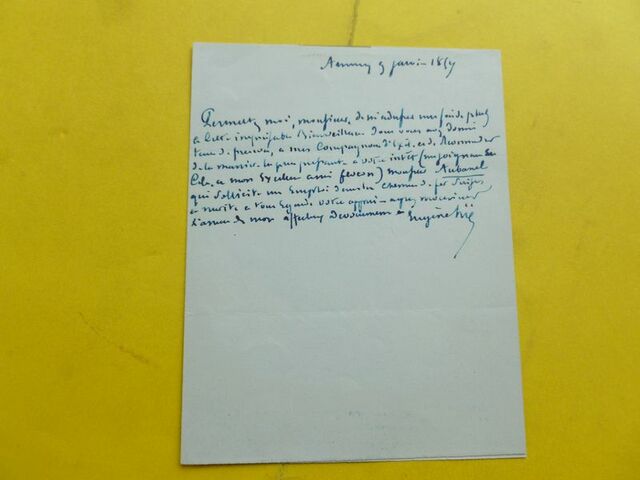 Annecy 9 janvier 1857
Permettez moi, monsieur, de m'adresser une fois de plus
à cette inépuisable Bienveillance dont vous avez donné
tant de preuves, à mes Compagnons d'Exil, et de Recommander
de la manière la plus pressante à votre intérêt (me joignant en
Cela, à mon Excellent ami) monsieur Aubanel
qui sollicite un Emploi dans les chemins de fer Suisses,
et mérite à tous Egards votre appui
L'assurance de mon affectueux Dévouement Eugène Sue